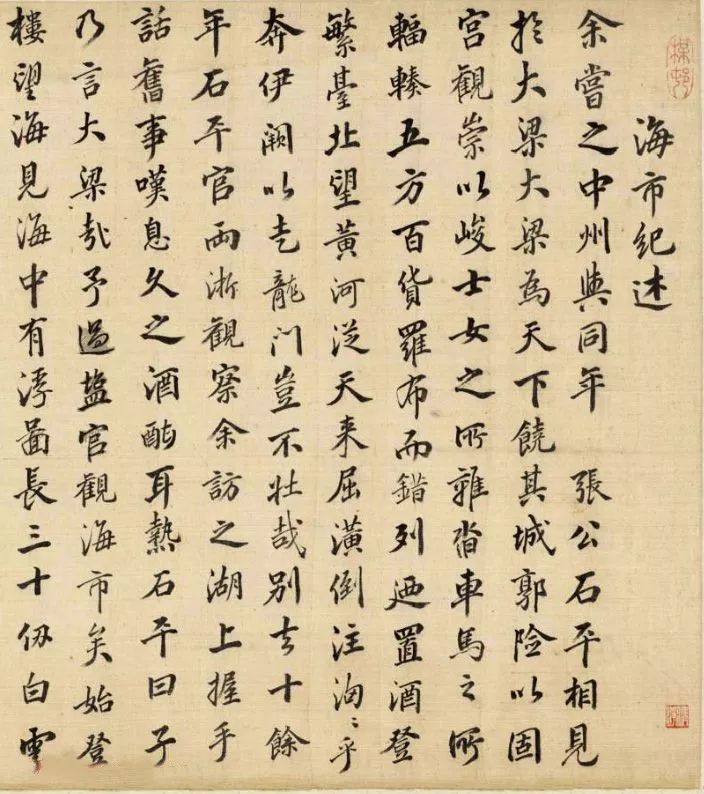 海市紀述
余嘗之中州與同年 張公石平相見
於大梁大梁為天下饒其城郭險以固
宮觀崇以峻士女之所雜沓車馬之所
輻輳五方百貨羅布而錯列迺置酒登
繁臺北望黃河從天來屈潢倒注洶〻乎
奔伊闕以走龍门豈不壯哉別去十餘
年石平官兩浙觀察余訪之湖上握手
話舊事嘆息久之酒酣耳熱石平曰子
乃言大梁哉予過盐官觀海市矣始登
樓望海見海中有浮啚長三十仭白雲